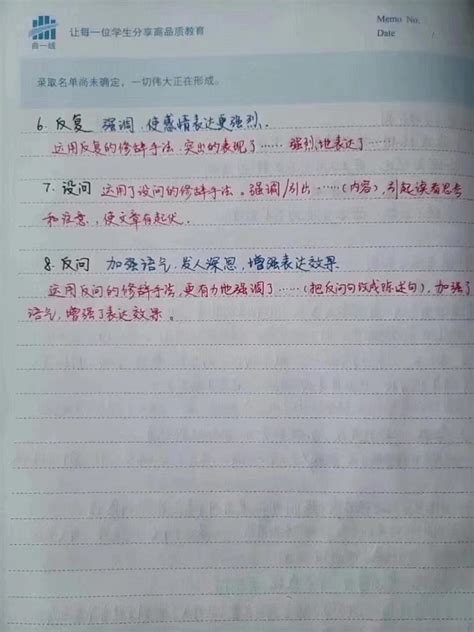 尚一线
让每一位学生分享高品质教育
Memo No.
Date
录取名单尚未确定，一切伟大正在形成。
6.反复 强调，使感情表达更强烈。
运用反复的修辞手法，突出的表现了……强烈地表达了……
7.设问 运用了设问的修辞手法。强调/引出……(内容)，引起读者思考
和注意，使文章有起伏。
8.反问 加强语气，发人深思，增强表达效果
运用反问的修辞手法，更有力地强调了……(把反问句改成陈述句)，加强了
语气，增强了表达效果。